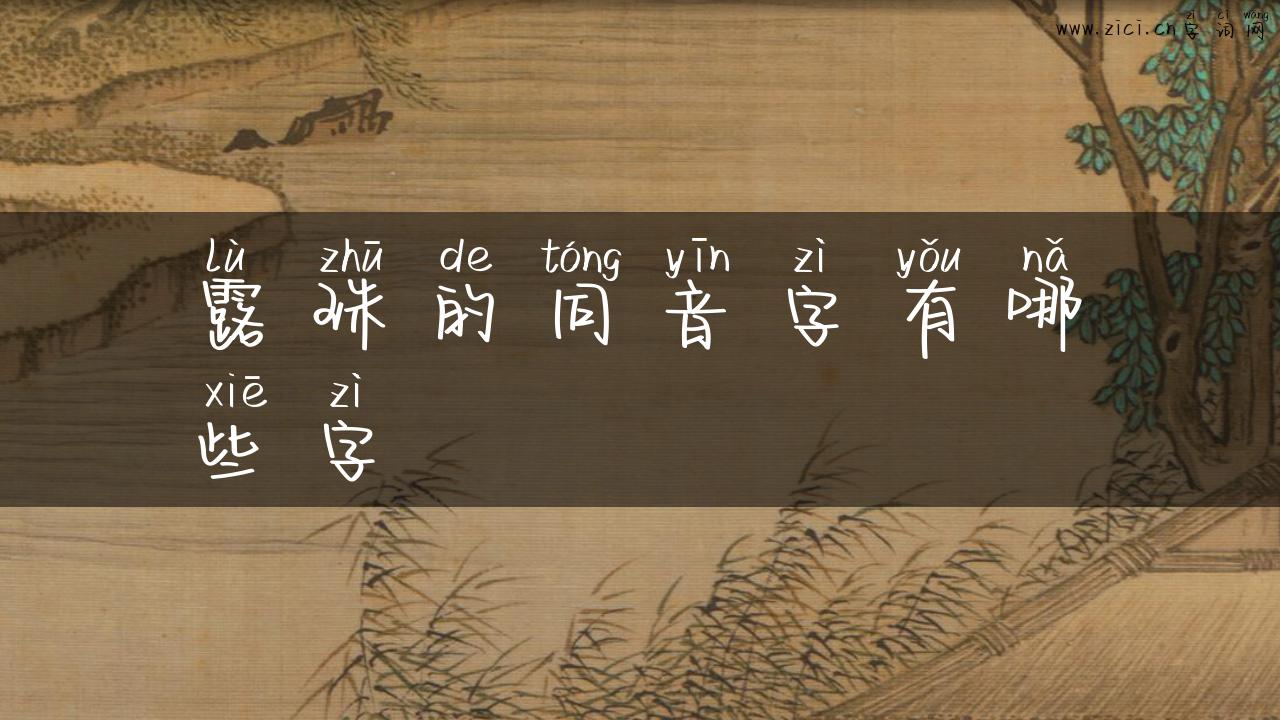 zì cí wǎng
www.zici.cn字词网
lù zhū de tóng yīn zì yǒu nǎ
露珠的同音字有哪
xiē zì
些字